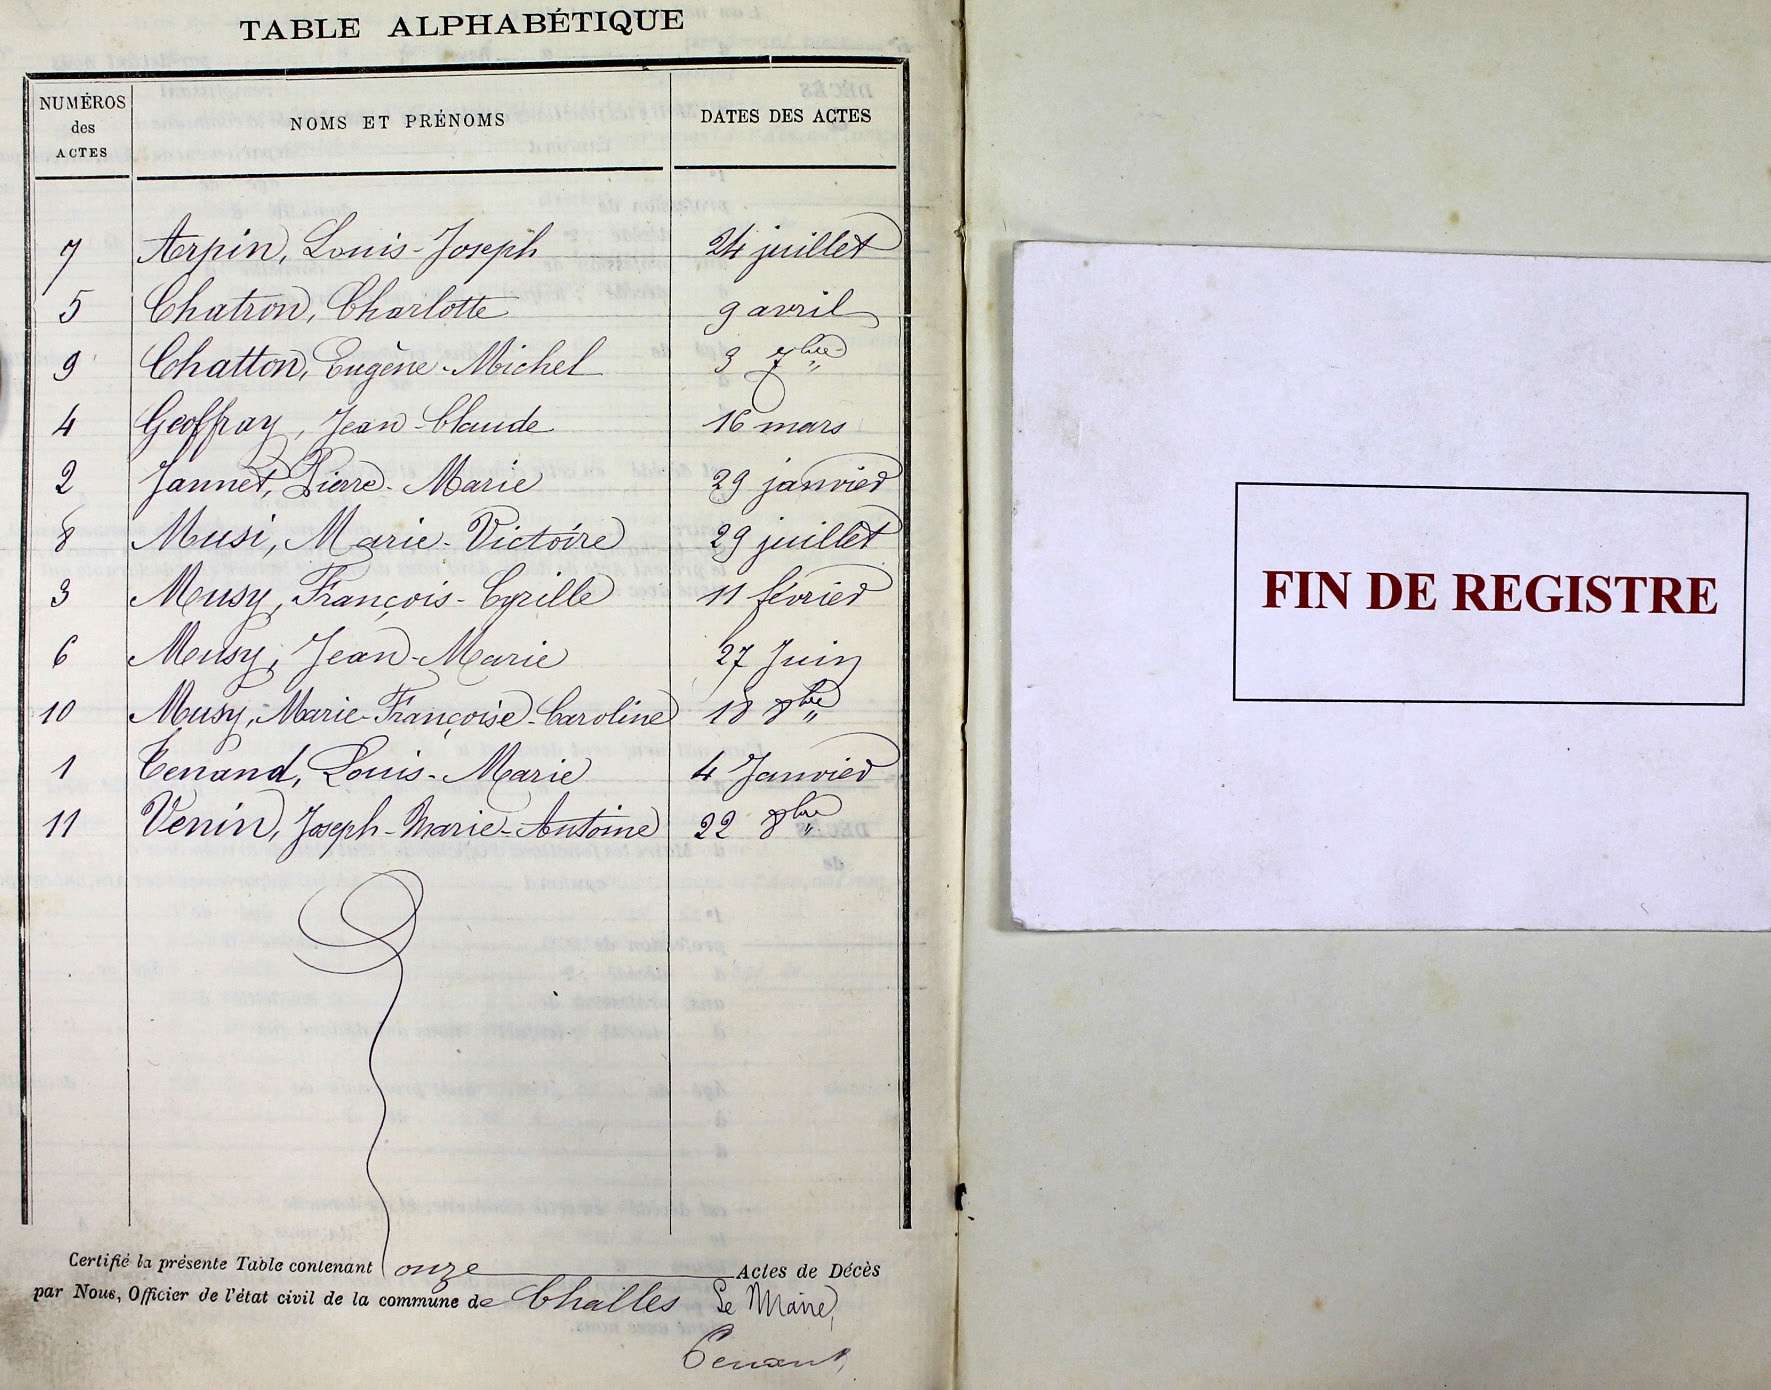 TABLE ALPHABÉTIQUE
NUMÉROS des ACTES NOMS ET PRÉNOMS DATES DES ACTES
7 Arpin, Louis-Joseph 24 juillet
5 Chatron, Charlotte 9 avril
9 Chatton, Eugène-Michel 3 7bre
4 Geoffray, Jean-Claude 16 mars
2 Jannet, Pierre-Marie 29 janvier
8 Musi, Marie-Victoire 29 juillet
3 Musy, François-Cyrille 11 février
6 Musy, Jean-Marie 27 Juin
10 Musy, Marie-Françoise-Caroline 18 8bre
1 Tenand, Louis-Marie 4 Janvier
11 Venin, Joseph-Marie-Antoine 22 8bre
Certifié la présente Table contenant onze Actes de Décès
par Nous, Officier de l'état civil de la commune de Challes Le Maire,
Tenand
FIN DE REGISTRE